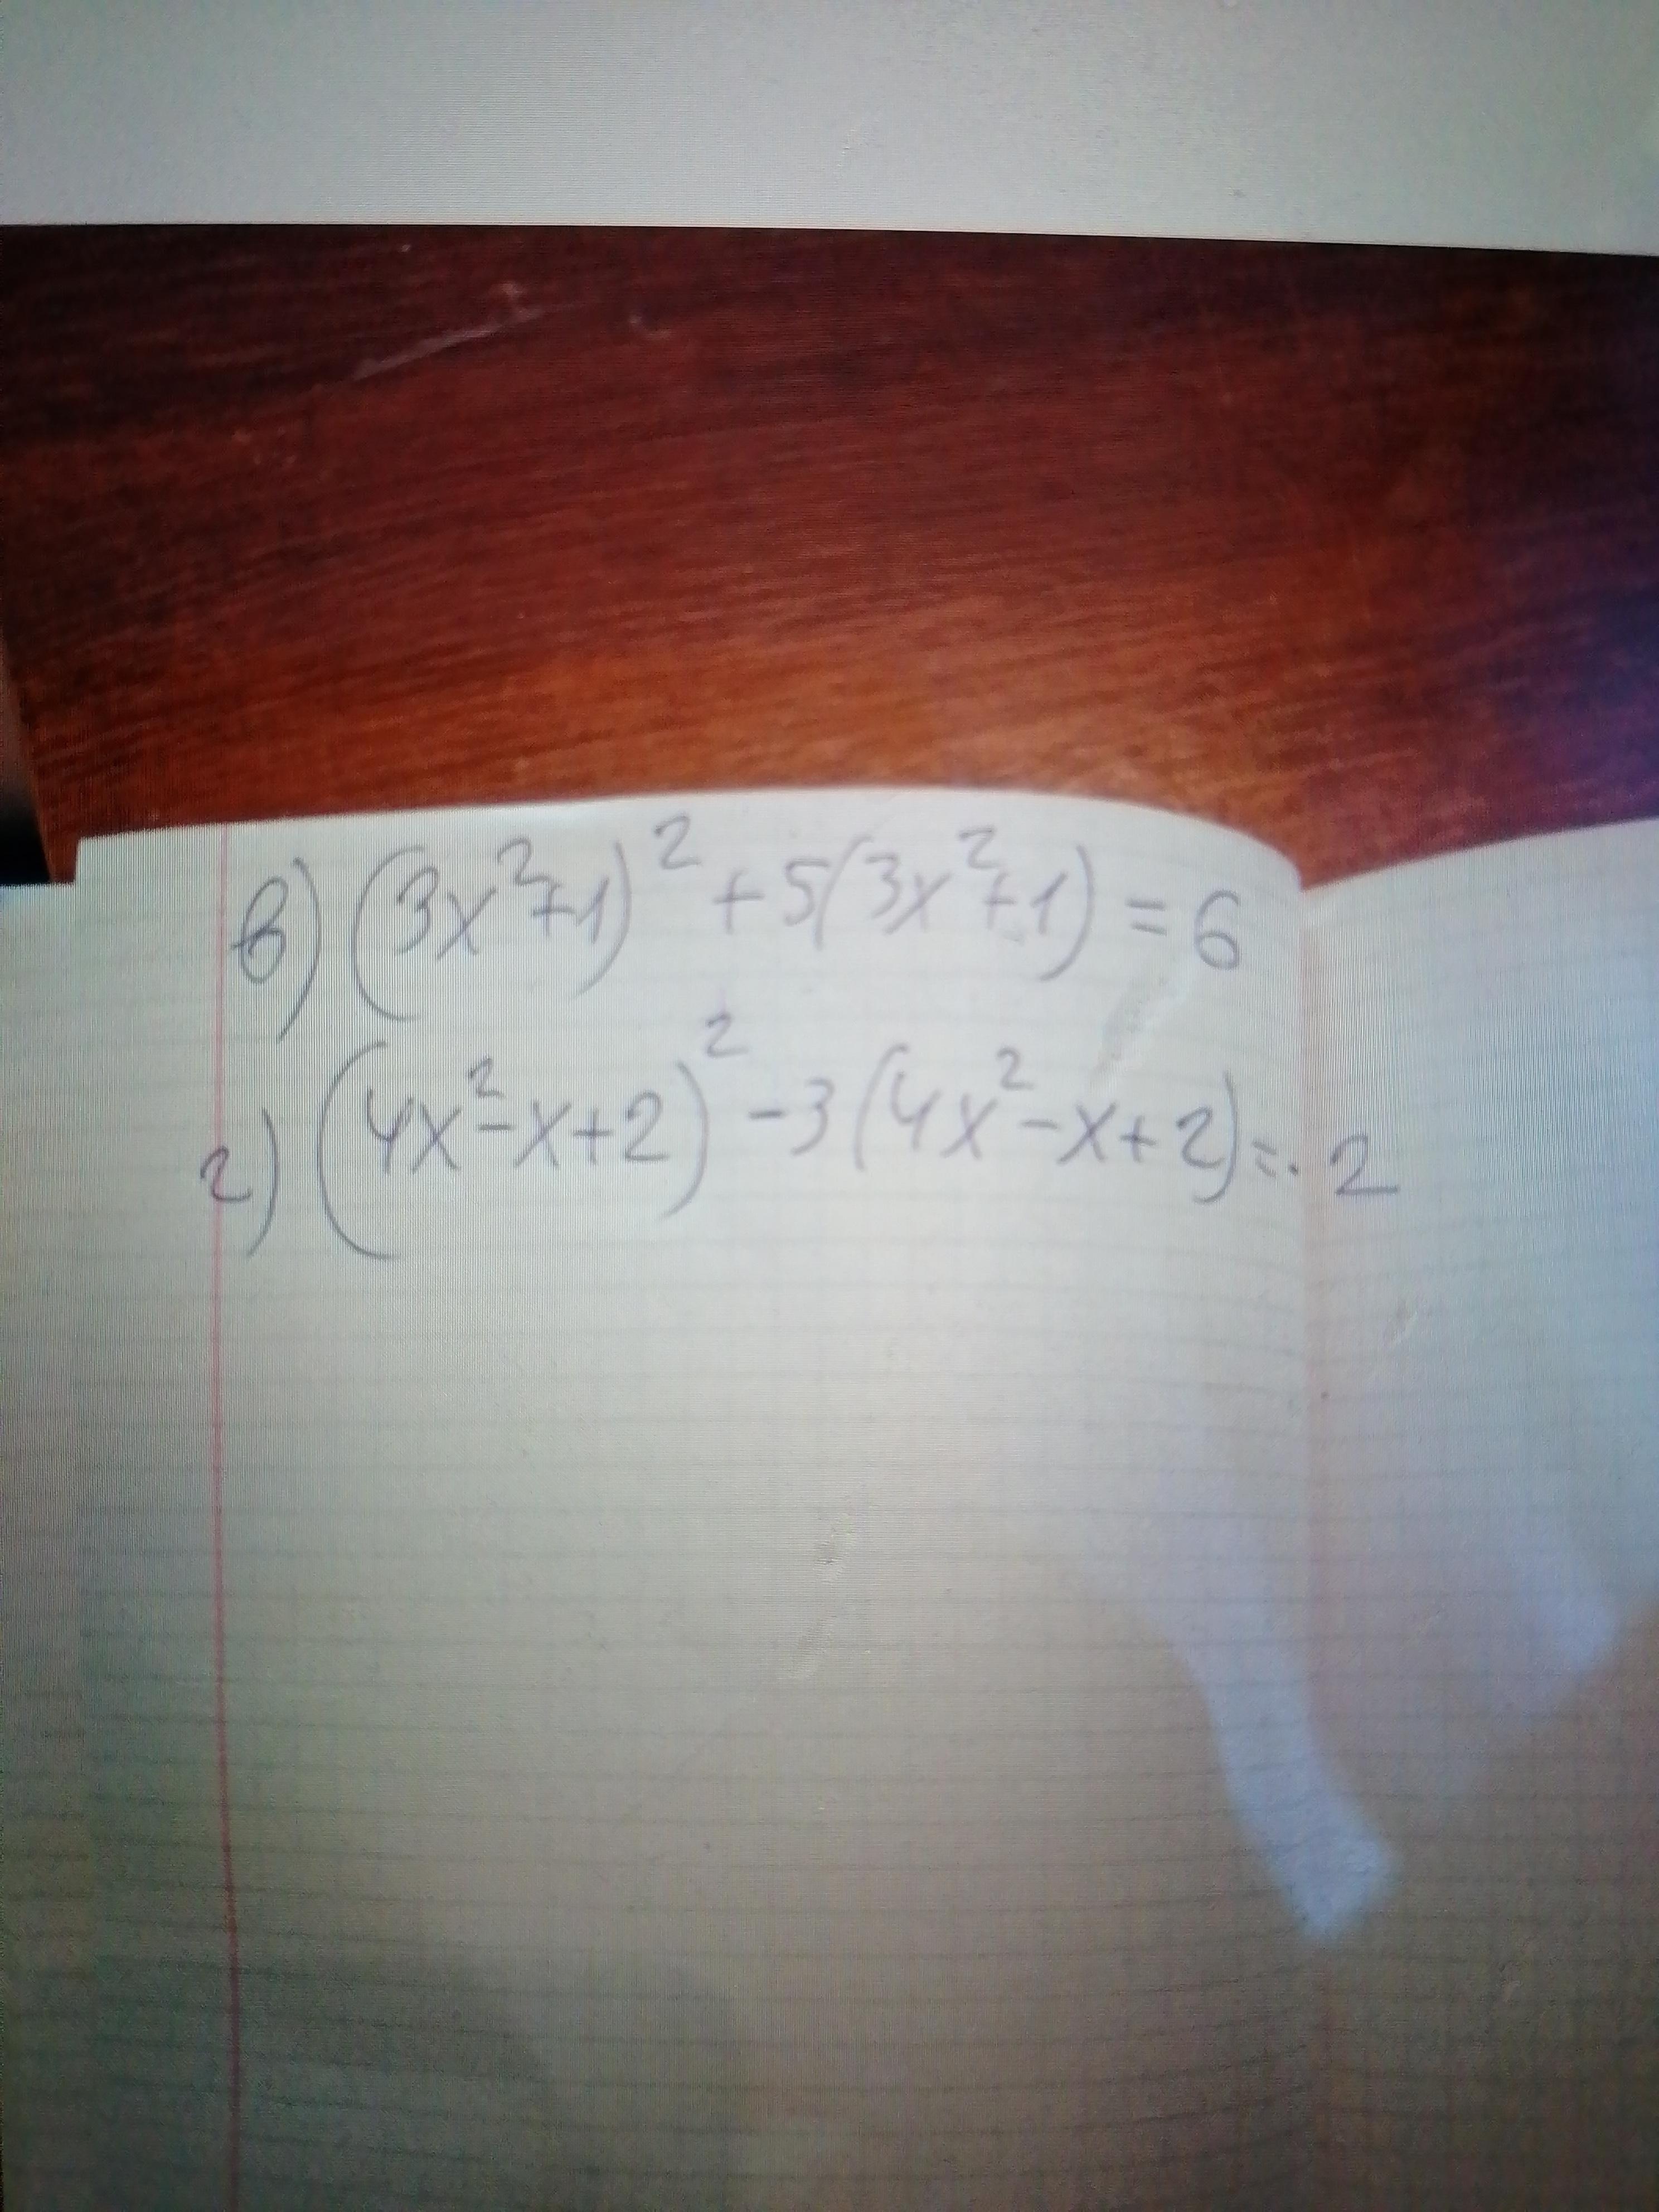 в) (3x²+1)² + 5(3x²+1) = 6
г) (4x²-x+2)² - 3(4x²-x+2)=. 2